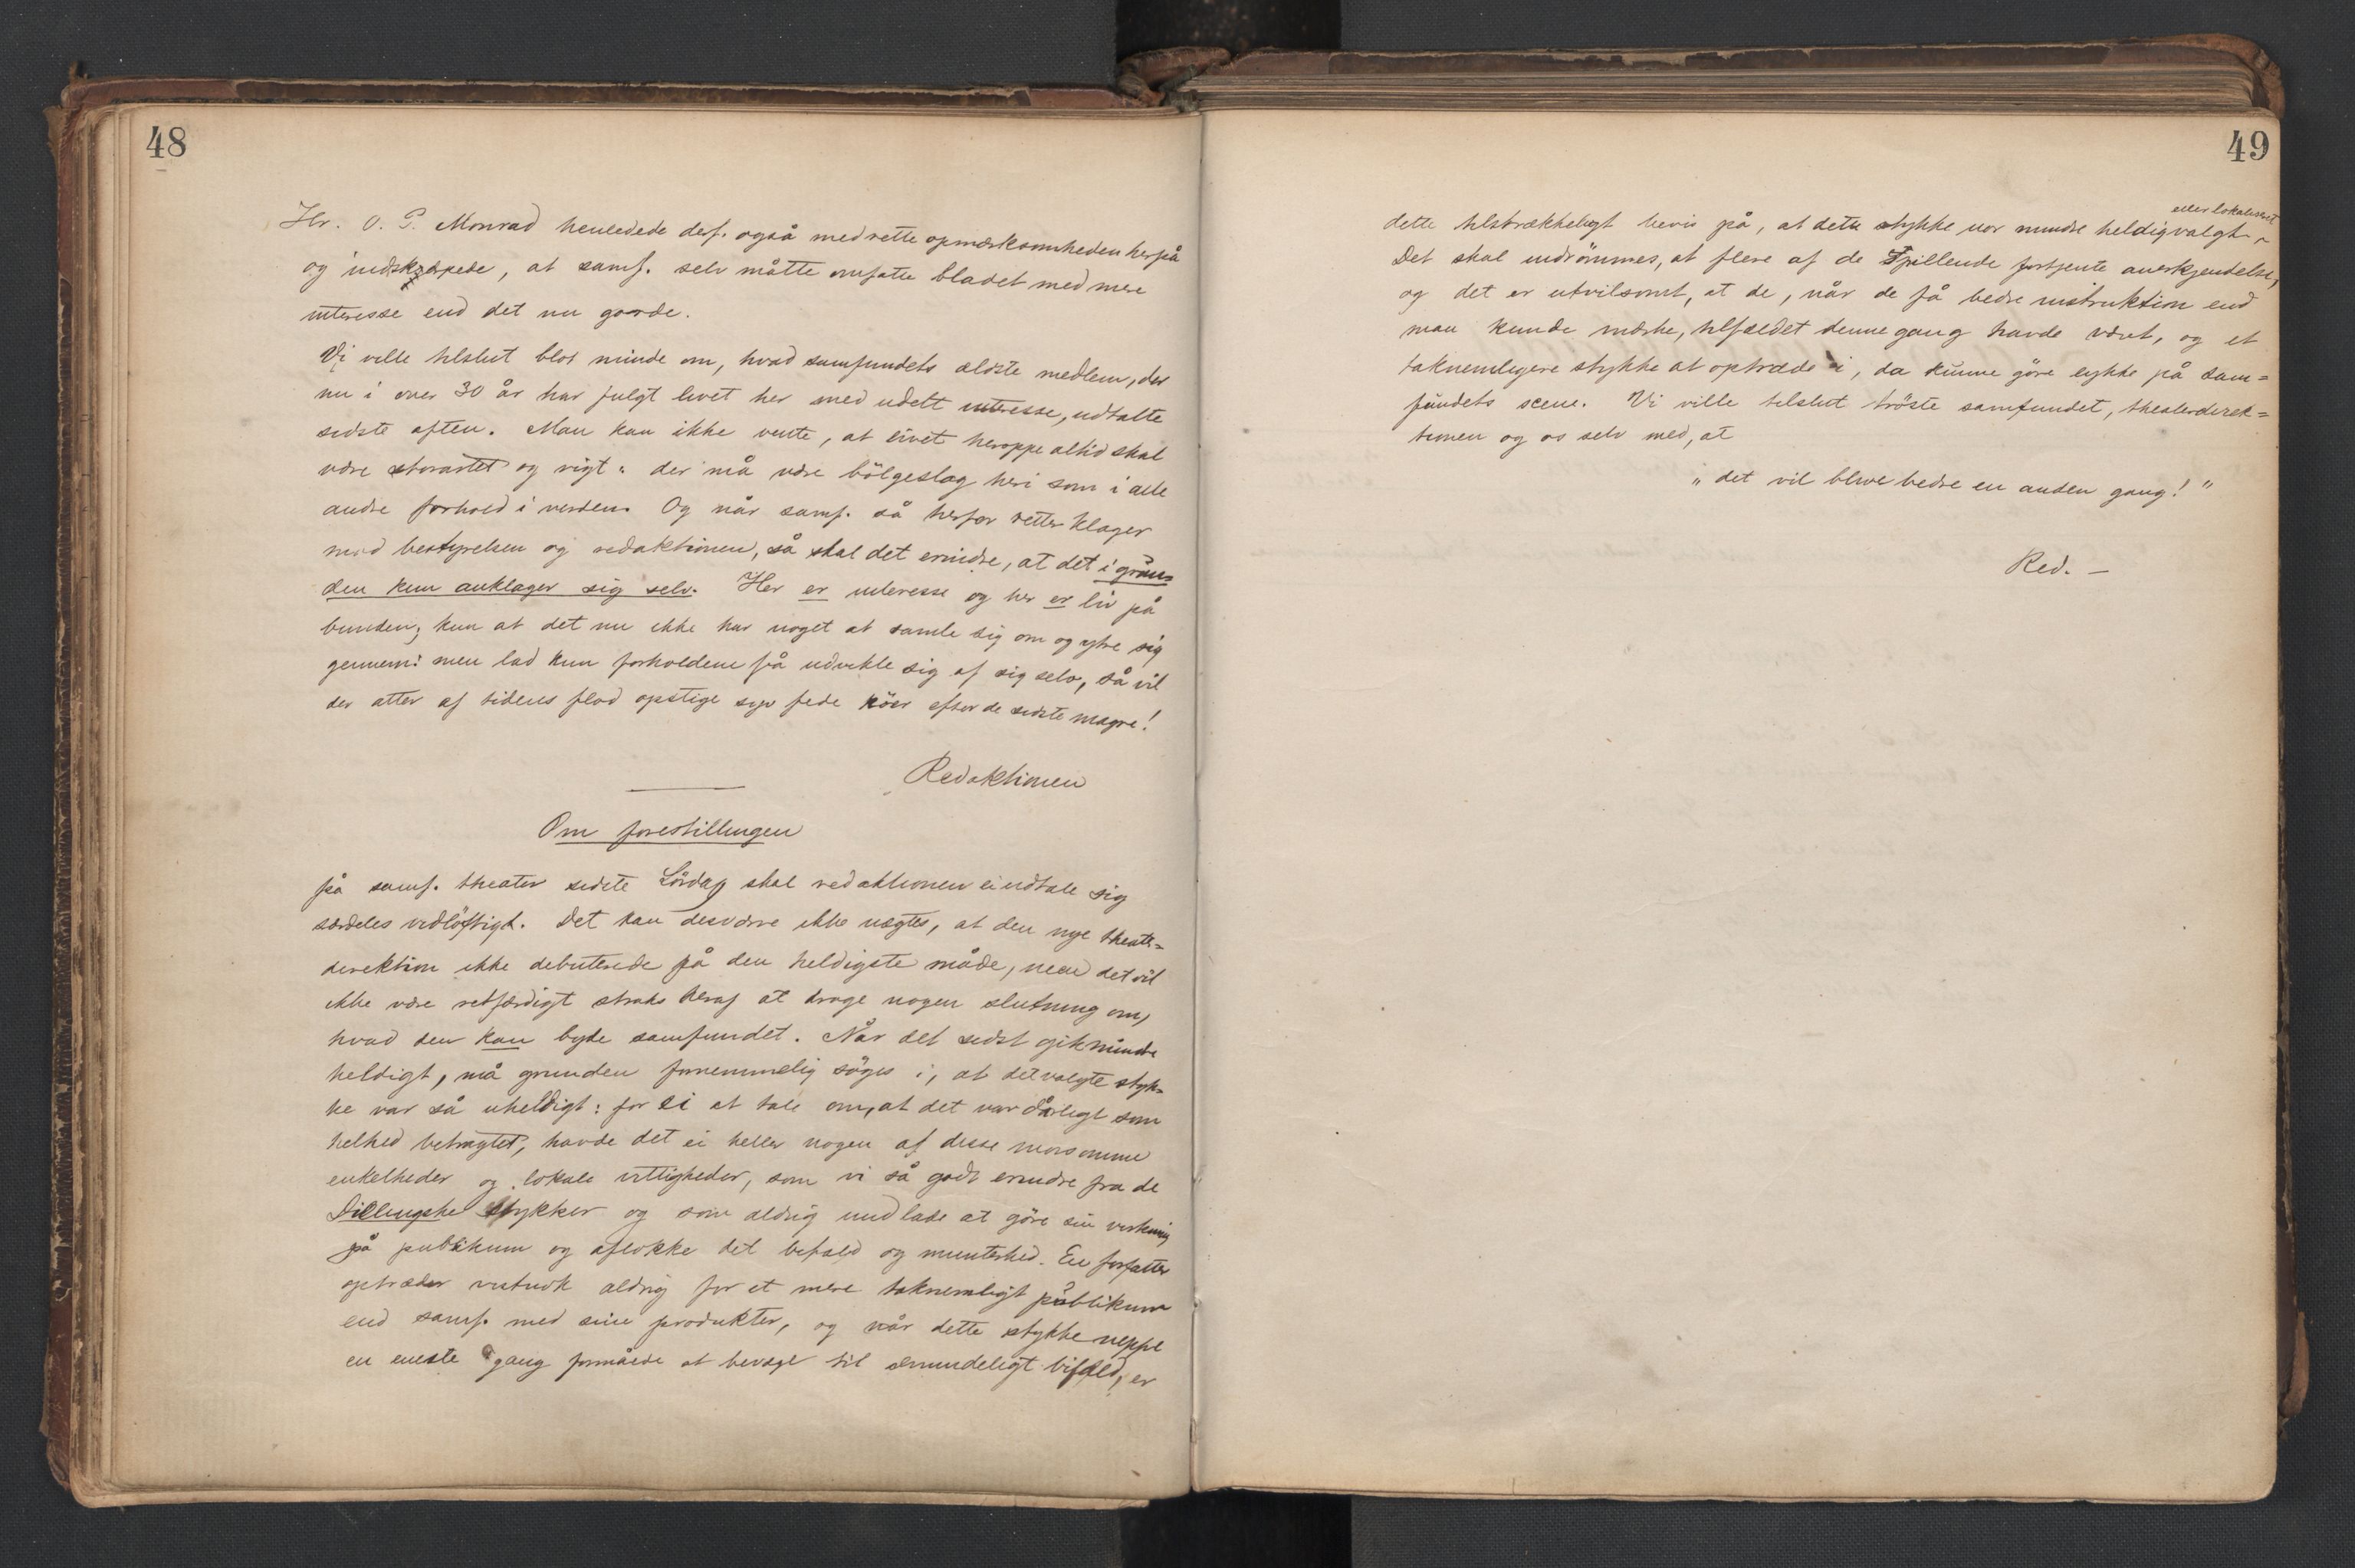 48
Hr. O. P. Monrad henledede derf. også med rette opmærksomheden herpå
og indskjærpede, at samf. selv måtte omfatte bladet med mere
interesse end det nu gjorde.
Vi ville tilslut blot minde om, hvad samfundets ældste medlem, der
nu i over 30 år har fulgt livet her med udelt interesse, udtalte
sidste aften. Man kan ikke vente, at livet heroppe altid skal
være storartet og rigt: der må være bölgeslag heri som i alle
andre forhold i verden. Og når samf. så herfor retter klager
mod bestyrelsen og redaktionen, så skal det erindre, at det i grun-
den kun anklager sig selv. Her er interesse og her er liv på
bunden; kun at det nu ikke har noget at samle sig om og ytre sig
gennem: men lad kun forholdene få udvikle sig af sig selv, så vil
der atter af tidens flod opstige syv fede köer efter de sidste magre!
Redaktionen
Om forestillingen
på samf. theater sidste Lördag skal redaktionen ei udtale sig
særdeles vidlöftigt. Det kan desværre ikke nægtes, at den nye theater=
direktion ikke debuterede på den heldigste måde, men det vil
ikke være retfærdigt straks heraf at drage nogen slutning om,
hvad den kan byde samfundet. Når det sidst gik mindre
heldigt, må grunden fornemmelig söges i, at det valgte styk-
ke var så uheldigt: for ei at tale om, at det var dårligt som
helhed betragtet, havde det ei heller nogen af disse morsomme
enkelheder og lokale vittigheder, som vi så godt erindre fra de
Dillingske stykker og som aldrig undlade at göre sin virkning
på publikum og aflokke det bifald og munterhed. En forfatter
optræder vistnok aldrig for et mere taknemligt publikum
end samf. med sine produkter, og når dette stykke neppe
en eneste gang formåede at bevæge til almindeligt bifald, er
49
eller lokaliseret
dette tilstrækkeligt bevis på, at dette stykke var mindre heldig valgt.
Det skal indrömmes, at flere af de Spillende fortjente anerkjendelse,
og det er utvilsomt, at de, når de få bedre instruktion end
man kunde mærke, tilfældet denne gang havde været, og et
taknemligere stykke at optræde i, da kunne göre lykke på sam=
fundets scene. Vi ville tilslut tröste samfundet, theaterdirek=
tionen og os selv med, at
"det vil blive bedre en anden gang!"
Red. –